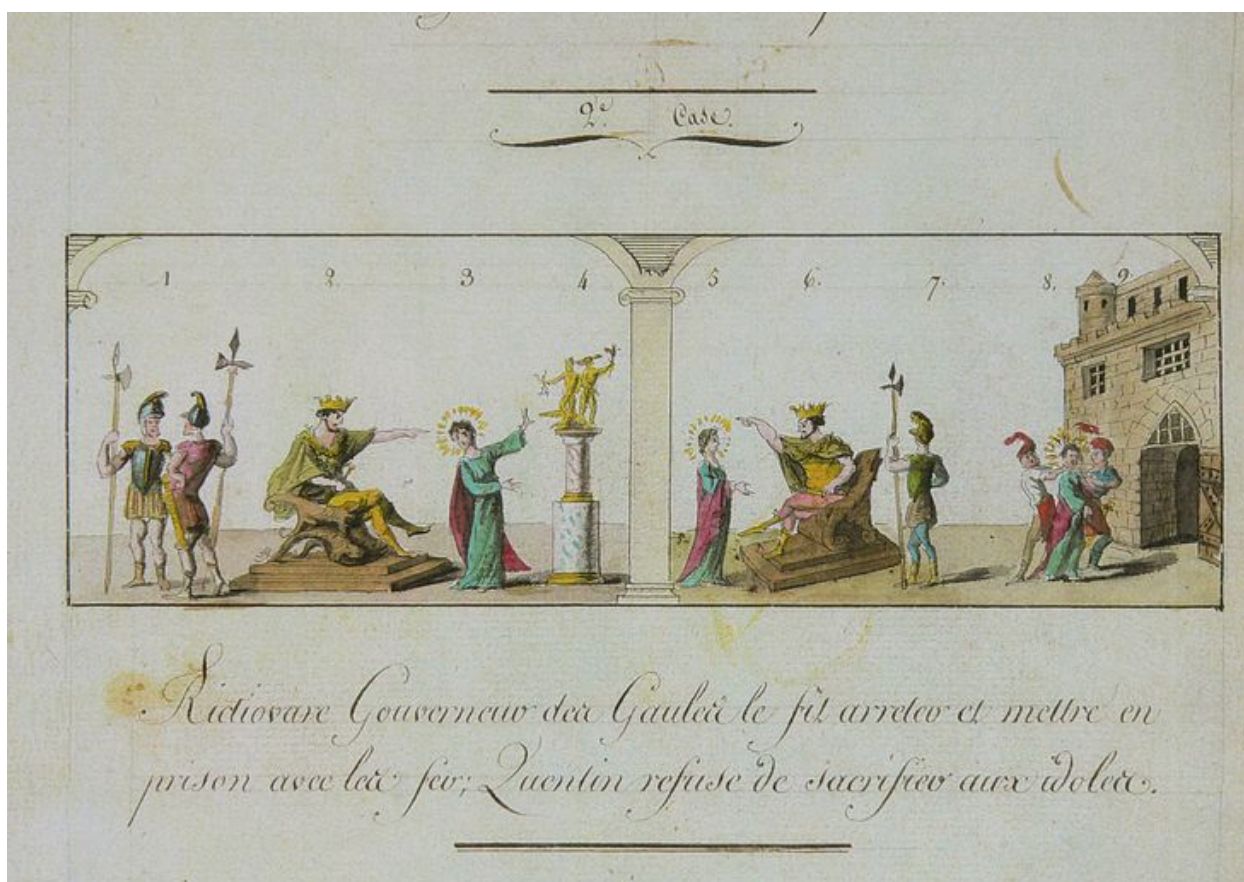 2.e Case.
1 2. 3 4 5 6. 7. 8. 9.
Rictiovare Gouverneur des Gaules le fit arreter et mettre en
prison avec les fer; Quentin refuse de sacrifier aux idoles.